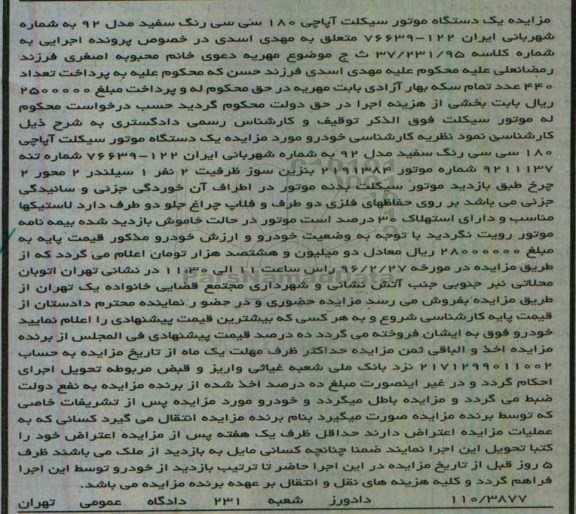 مزایده یک دستگاه موتور سیکلت آپاچی ۱۸۰ سی سی رنگ سفید مدل ۹۲ به شماره
شهربانی ایران ۱۲۲-۷۶۶۳۹ متعلق به مهدی اسدی در خصوص پرونده اجرایی به
شماره کلاسه ۳۷/۲۳۱/۹۵ ث ج موضوع مهریه دعوی خانم محبوبه اصغری فرزند
رمضانعلی علیه محکوم علیه مهدی اسدی فرزند حسن که محکوم علیه به پرداخت تعداد
۴۴۰ عدد تمام سکه بهار آزادی بابت مهریه در حق محکوم له و پرداخت مبلغ ۲۵۰۰۰۰۰
ریال بابت بخشی از هزینه اجرا در حق دولت محکوم گردید حسب درخواست محکوم
له موتور سیکلت فوق الذکر توقیف و کارشناس رسمی دادگستری به شرح ذیل
کارشناسی نمود نظریه کارشناسی خودرو مورد مزایده یک دستگاه موتور سیکلت آپاچی
۱۸۰ سی سی رنگ سفید مدل ۹۲ به شماره شهربانی ایران ۱۲۲-۷۶۶۳۹ شماره تنه
۹۲۱۱۱۳۷ شماره موتور ۲۱۹۱۳۸۴ بنزین سوز ظرفیت ۲ نفر ۱ سیلندر ۲ محور ۲
چرخ طبق بازدید موتور سیکلت بدنه موتور در اطراف آن خوردگی جزئی و سائیدگی
جزئی می باشد بر روی حفاظهای فلزی دو طرف و فلاپ چراغ جلو دو طرف دارد لاستیکها
مناسب و دارای استهلاک ۳۰ درصد است موتور در حالت خاموش بازدید شده بیمه نامه
موتور رویت نگردید با توجه به وضعیت خودرو و ارزش خودرو مذکور قیمت پایه به
مبلغ ۲۸۰۰۰۰۰۰ ریال معادل دو میلیون و هشتصد هزار تومان اعلام می گردد که از
طریق مزایده در مورخه ۹۶/۲/۲۷ راس ساعت ۱۱ الی ۱۱:۳۰ در نشانی تهران اتوبان
محلاتی نبر جنوبی جنب آتش نشانی و شهرداری مجتمع قضایی خانواده یک تهران از
طریق مزایده بفروش می رسد مزایده حضوری و در حضور نماینده محترم دادستان از
قیمت پایه کارشناسی شروع و به هر کسی که بیشترین قیمت پیشنهادی را اعلام نمایید
خودرو فوق به ایشان فروخته می گردد ده درصد قیمت پیشنهادی فی المجلس از برنده
مزایده اخذ و الباقی ثمن مزایده حداکثر ظرف مهلت یک ماه از تاریخ مزایده به حساب
۲۱۷۱۲۹۹۰۱۱۰۰۲ نزد بانک ملی شعبه غیاثی واریز و قبض مربوطه تحویل اجرای
احکام گردد و در غیر اینصورت مبلغ ده درصد اخذ شده از برنده مزایده به نفع دولت
ضبط می گردد و مزایده باطل میگردد و خودرو مورد مزایده پس از تشریفات خاصی
که توسط برنده مزایده صورت میگیرد بنام برنده مزایده انتقال می گیرد کسانی که به
عملیات مزایده اعتراض دارند حداقل ظرف یک هفته پس از مزایده اعتراض خود را
کتبا تحویل این اجرا نمایند ضمنا چنانچه کسانی مایل به بازدید از ملک می باشند ظرف
۵ روز قبل از تاریخ مزایده در این اجرا حاضر تا ترتیب بازدید از خودرو توسط این اجرا
فراهم گردد و کلیه هزینه های نقل و انتقال بر عهده برنده مزایده می باشد.
۱۱۰/۳۸۷۷ دادورز شعبه ۲۳۱ دادگاه عمومی تهران